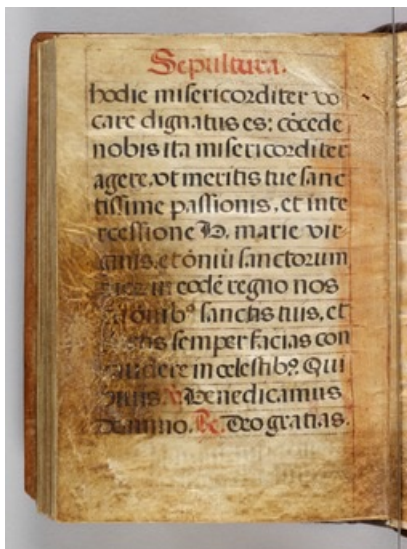 Sepultura.
hodie misericorditer vo
care dignatus es: cõcede
nobis ita misericorditer
agere, vt meritis tue sanc
tissime passionis, et inte
rcessione B. marie vir
ginis, et õniũ sanctorum
in eodẽ regno nos
õnibꝰ sanctis tuis, et
semper facias con
gaudere in celestibꝰ. Qui
viuis. ℣. Benedicamus
Domino. ℟. Deo gratias.